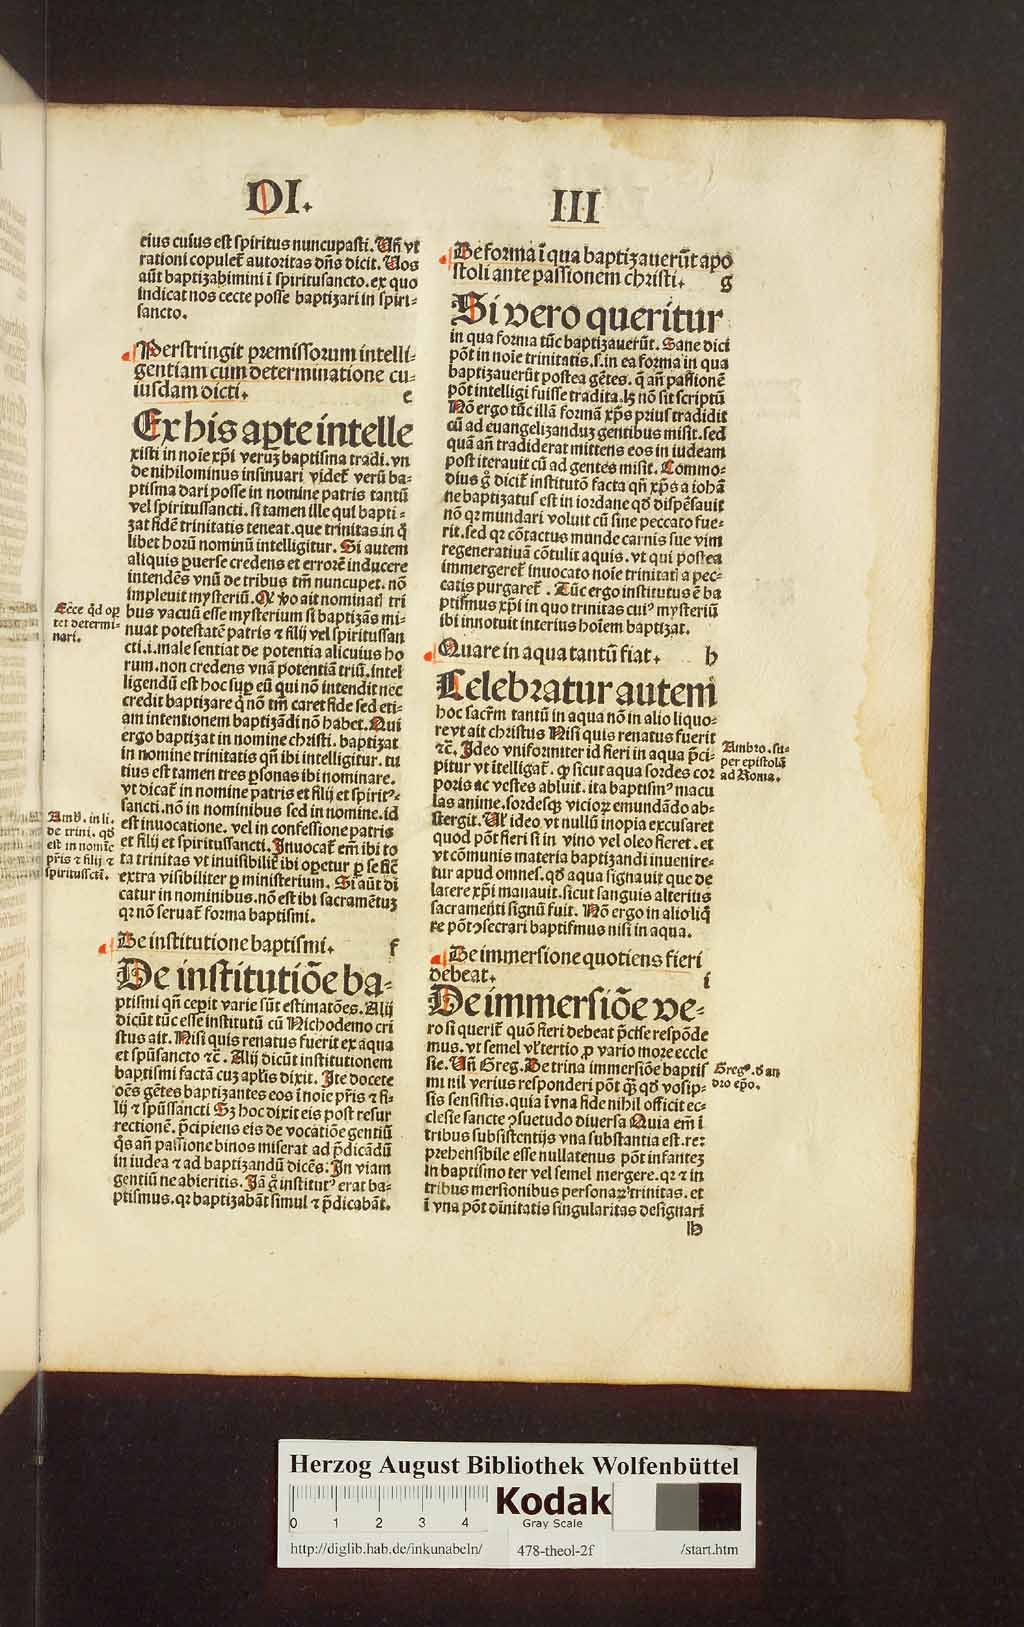 DI.
III
eius cuius est spiritus nuncupasti. Uñ vt
rationi copulet̃ autoritas dñs dicit. Uos
aũt baptizabimini ĩ spiritusancto. ex quo
indicat nos cecte posse baptizari in spiri-
sancto.
Perstringit premissorum intelli-
gentiam cum determinatione cu-
iusdam dicti. e
Ex his aperte intelle
xisti in noĩe xp̃i veruz baptisma tradi. vn
de nihilominus insinuari videt̃ verũ ba-
ptisma dari posse in nomine patris tantũ
vel spiritussancti. si tamen ille qui bapti-
zat fidẽ trinitatis teneat. que trinitas in q̃
libet horũ nominũ intelligitur. Si autem
aliquis ꝑuerse credens et errorẽ inducere
intendẽs vnũ de tribus tm̃ nuncupet. nõ
impleuit mysteriũ. Q ṽo ait nominatꝭ tri
bus vacuũ esse mysterium si baptizãs mi-
nuat potestatẽ patris ⁊ filij vel spiritussan
cti. i. male sentiat de potentia alicuius ho
rum. non credens vnã potentiã triũ. intel
ligendũ est hoc suꝑ eũ qui nõ intendit nec
credit baptizare q̃ nõ tm̃ caret fide sed eti-
am intentionem baptizãdi nõ habet. Qui
ergo baptizat in nomine christi. baptizat
in nomine trinitatis qñ ibi intelligitur. tu
tius est tamen tres ꝑsonas ibi nominare.
vt dicat̃ in nomine patris et filij et spiritꝰ-
sancti. nõ in nominibus sed in nomine. id
est inuocatione. vel in confessione patris
et filij et spiritussancti. Inuocat̃ em̃ ibi to
ta trinitas vt inuisibilit̃ ibi oꝑetur ꝑ se sic̃
extra visibiliter ꝑ ministerium. Si aũt di
catur in nominibus. nõ est ibi sacramẽtuz
qꝛ nõ seruat̃ forma baptismi.
De institutione baptismi. f
De institutiõe ba-
ptismi qñ cepit varie sũt estimatões. Alij
dicũt tũc esse institutũ cũ Nichodemo cri
stus ait. Nisi quis renatus fuerit ex aqua
et spũsancto ⁊c̃. Alij dicũt institutionem
baptismi factã cuz apl̃is dixit. Ite docete
oẽs gẽtes baptizantes eos ĩ noĩe pr̃is ⁊ fi-
lij ⁊ spũssancti Sz hoc dixit eis post resur
rectionẽ. p̃cipiens eis de vocatiõe gentiũ
q̃s añ passione binos miserat ad p̃dicãdũ
in iudea ⁊ ad baptizandũ dicẽs. In viam
gentiũ ne abieritis. Iã g̃ institutꝰ erat ba-
ptismus. qꝛ baptizabãt simul ⁊ p̃dicabãt.
Ecce qd̃ opꝫ
tet determi-
nari.
Amb. in li.
de trini. qd̃
est in nomĩe
pr̃is ⁊ filij ⁊
spiritussctĩ.
De forma ĩ qua baptizauerũt apo
stoli ante passionem christi. g
Si vero queritur
in qua forma tũc baptizauerũt. Sane dici
põt in noĩe trinitatis. s. in ea forma in qua
baptizauerũt postea gẽtes. q̃ añ passionẽ
põt intelligi fuisse tradita. lz nõ sit scriptũ
Nõ ergo tũc illã formã xp̃s prius tradidit
cũ ad euangelizanduz gentibus misit. sed
quã añ tradiderat mittens eos in iudeam
post iterauit cũ ad gentes misit. Commo-
dius g̃ dicit̃ institutõ facta qñ xp̃s a iohã
ne baptizatus est in iordane qd̃ dispẽsauit
nõ qꝛ mundari voluit cũ sine peccato fue-
rit. sed qꝛ cõtactus munde carnis sue vim
regeneratiuã cõtulit aquis. vt qui postea
immergeret̃ inuocato noĩe trinitatꝭ a pec-
catis purgaret̃. Tũc ergo institutus ẽ ba
ptismus xp̃i in quo trinitas cuiꝰ mysteriũ
ibi innotuit interius hoĩem baptizat.
Quare in aqua tantũ fiat. h
Celebratur autem
hoc sacr̃m tantũ in aqua nõ in alio liquo-
re vt ait christus Nisi quis renatus fuerit
⁊c̃. Ideo vniformiter id fieri in aqua p̃ci-
pitur vt ĩtelligat̃. ꝙ sicut aqua sordes cor
poris ac vestes abluit. ita baptismꝰ macu
las anime. sordesqꝫ vicioꝝ emundãdo ab-
stergit. Ul̃ ideo vt nullũ inopia excusaret
quod põt fieri si in vino vel oleo fieret. et
vt cõmunis materia baptizandi inuenire-
tur apud omnes. qd̃ aqua signauit que de
latere xp̃i manauit. sicut sanguis alterius
sacramenti signũ fuit. Nõ ergo in alio liq̃
re põt ꝯsecrari baptismus nisi in aqua.
De immersione quotiens fieri
debeat. i
De immersiõe ve-
ro si querit̃ quõ fieri debeat p̃cise respõde
mus. vt semel vl̃ tertio ꝓ vario more eccle
sie. Uñ Greg. De trina immersiõe baptis
mi nil verius responderi põt q̃ꝫ qd̃ vosip-
sis sensistis. quia ĩ vna fide nihil officit ec-
clesie sancte ꝯsuetudo diuersa Quia em̃ ĩ
tribus subsistentijs vna substantia est. re-
prehensibile esse nullatenus põt infantez
in baptismo ter vel semel mergere. qꝛ ⁊ in
tribus mersionibus personaꝝ trinitas. et
ĩ vna põt diuinitatis singularitas designari
h
Ambro. su-
per epistolã
ad Roma.
Gregꝰ. d̃ an
dro ep̃o.
Herzog August Bibliothek Wolfenbüttel
0 1 2 3 4
Kodak
Gray Scale
http://diglib.hab.de/inkunabeln/
478-theol-2f
/start.htm